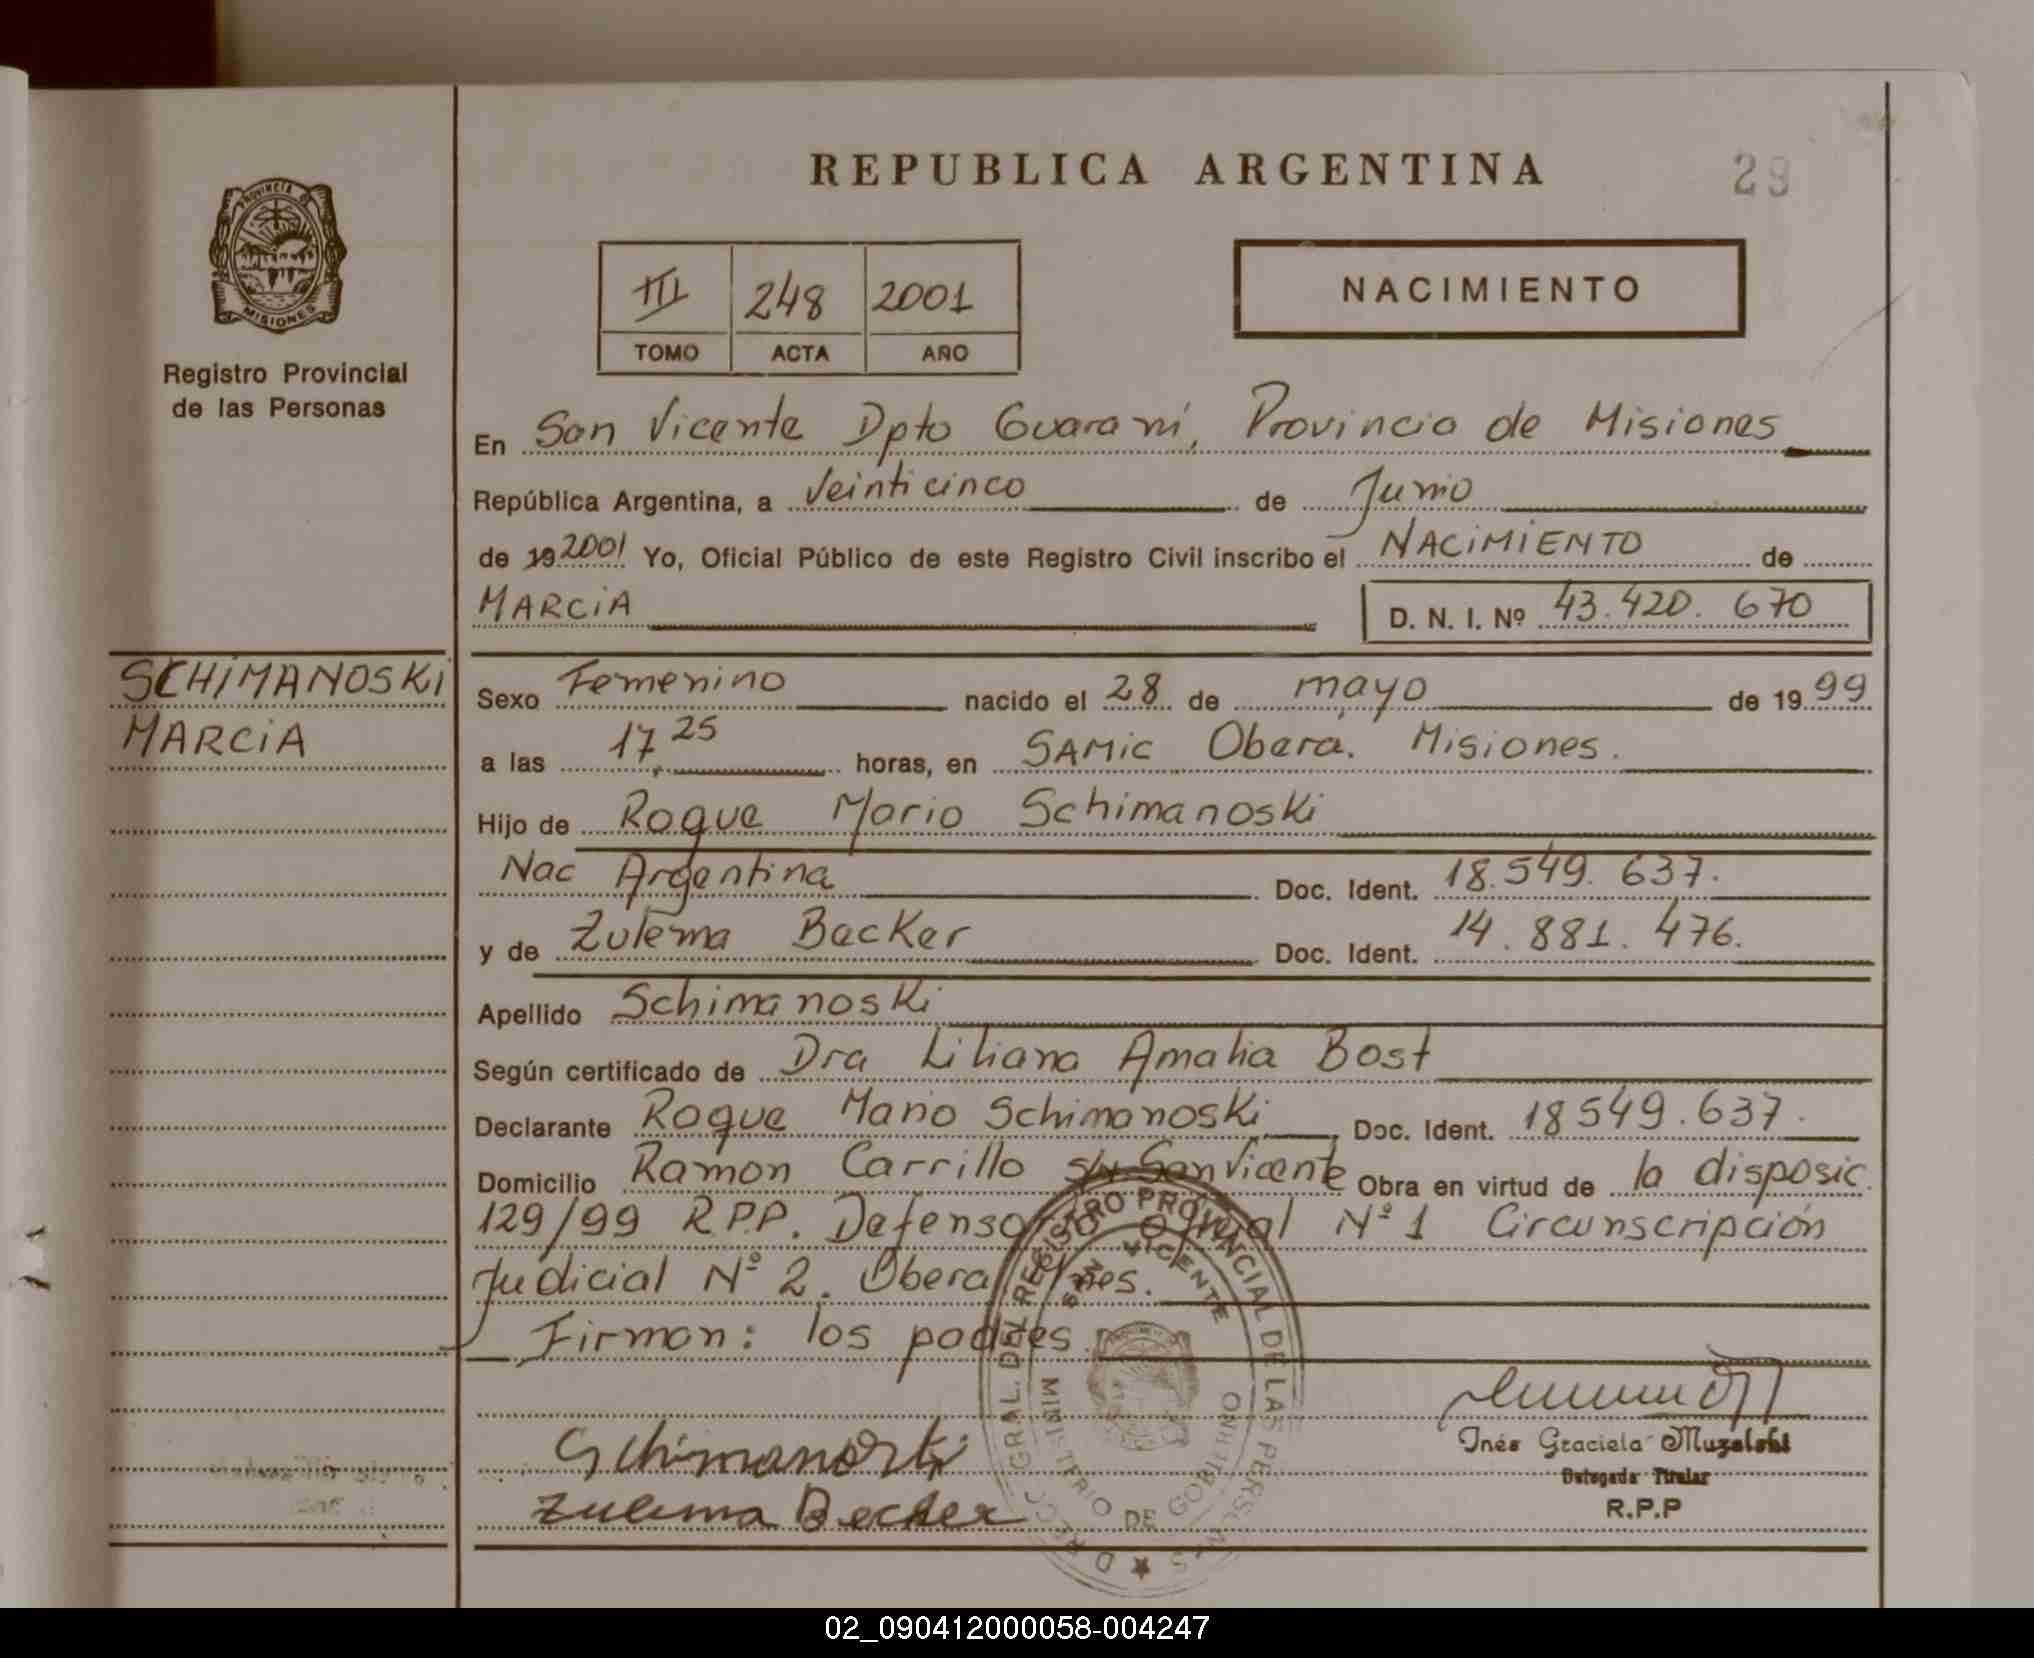 REPUBLICA ARGENTINA
29
PROVINCIA
MISIONES
Registro Provincial
de las Personas
III 248 2001
TOMO ACTA AÑO
NACIMIENTO
En San Vicente Dpto Guaraní, Provincia de Misiones
República Argentina, a Veinticinco de Junio
de 192001 Yo, Oficial Público de este Registro Civil inscribo el NACIMIENTO de
MARCIA
D. N. I. Nº 43.420.670
SCHIMANOSKI
MARCIA
Sexo Femenino nacido el 28 de mayo de 1999
a las 17,25 horas, en SAMIC Oberá. Misiones.
Hijo de Roque Mario Schimanoski
Nac Argentina Doc. Ident. 18.549.637.
y de Zulema Becker Doc. Ident. 14.881.476.
Apellido Schimanoski
Según certificado de Dra Liliana Amalia Bost
Declarante Roque Mario Schimanoski Doc. Ident. 18549.637.
Domicilio Ramon Carrillo s/n San Vicente Obra en virtud de la disposic.
129/99 R.P.P. Defensoría Oficial Nº 1 Circunscripción
Judicial Nº 2. Obera Mnes.
Firman: los padres
Schimanoski
Zulema Becker
DIRECC. GRAL. DEL REGISTRO PROVINCIAL DE LAS PERSONAS
SAN VICENTE
MINISTERIO DE GOBIERNO
Inés Graciela Muzalski
Delegada Titular
R.P.P
02_090412000058-004247